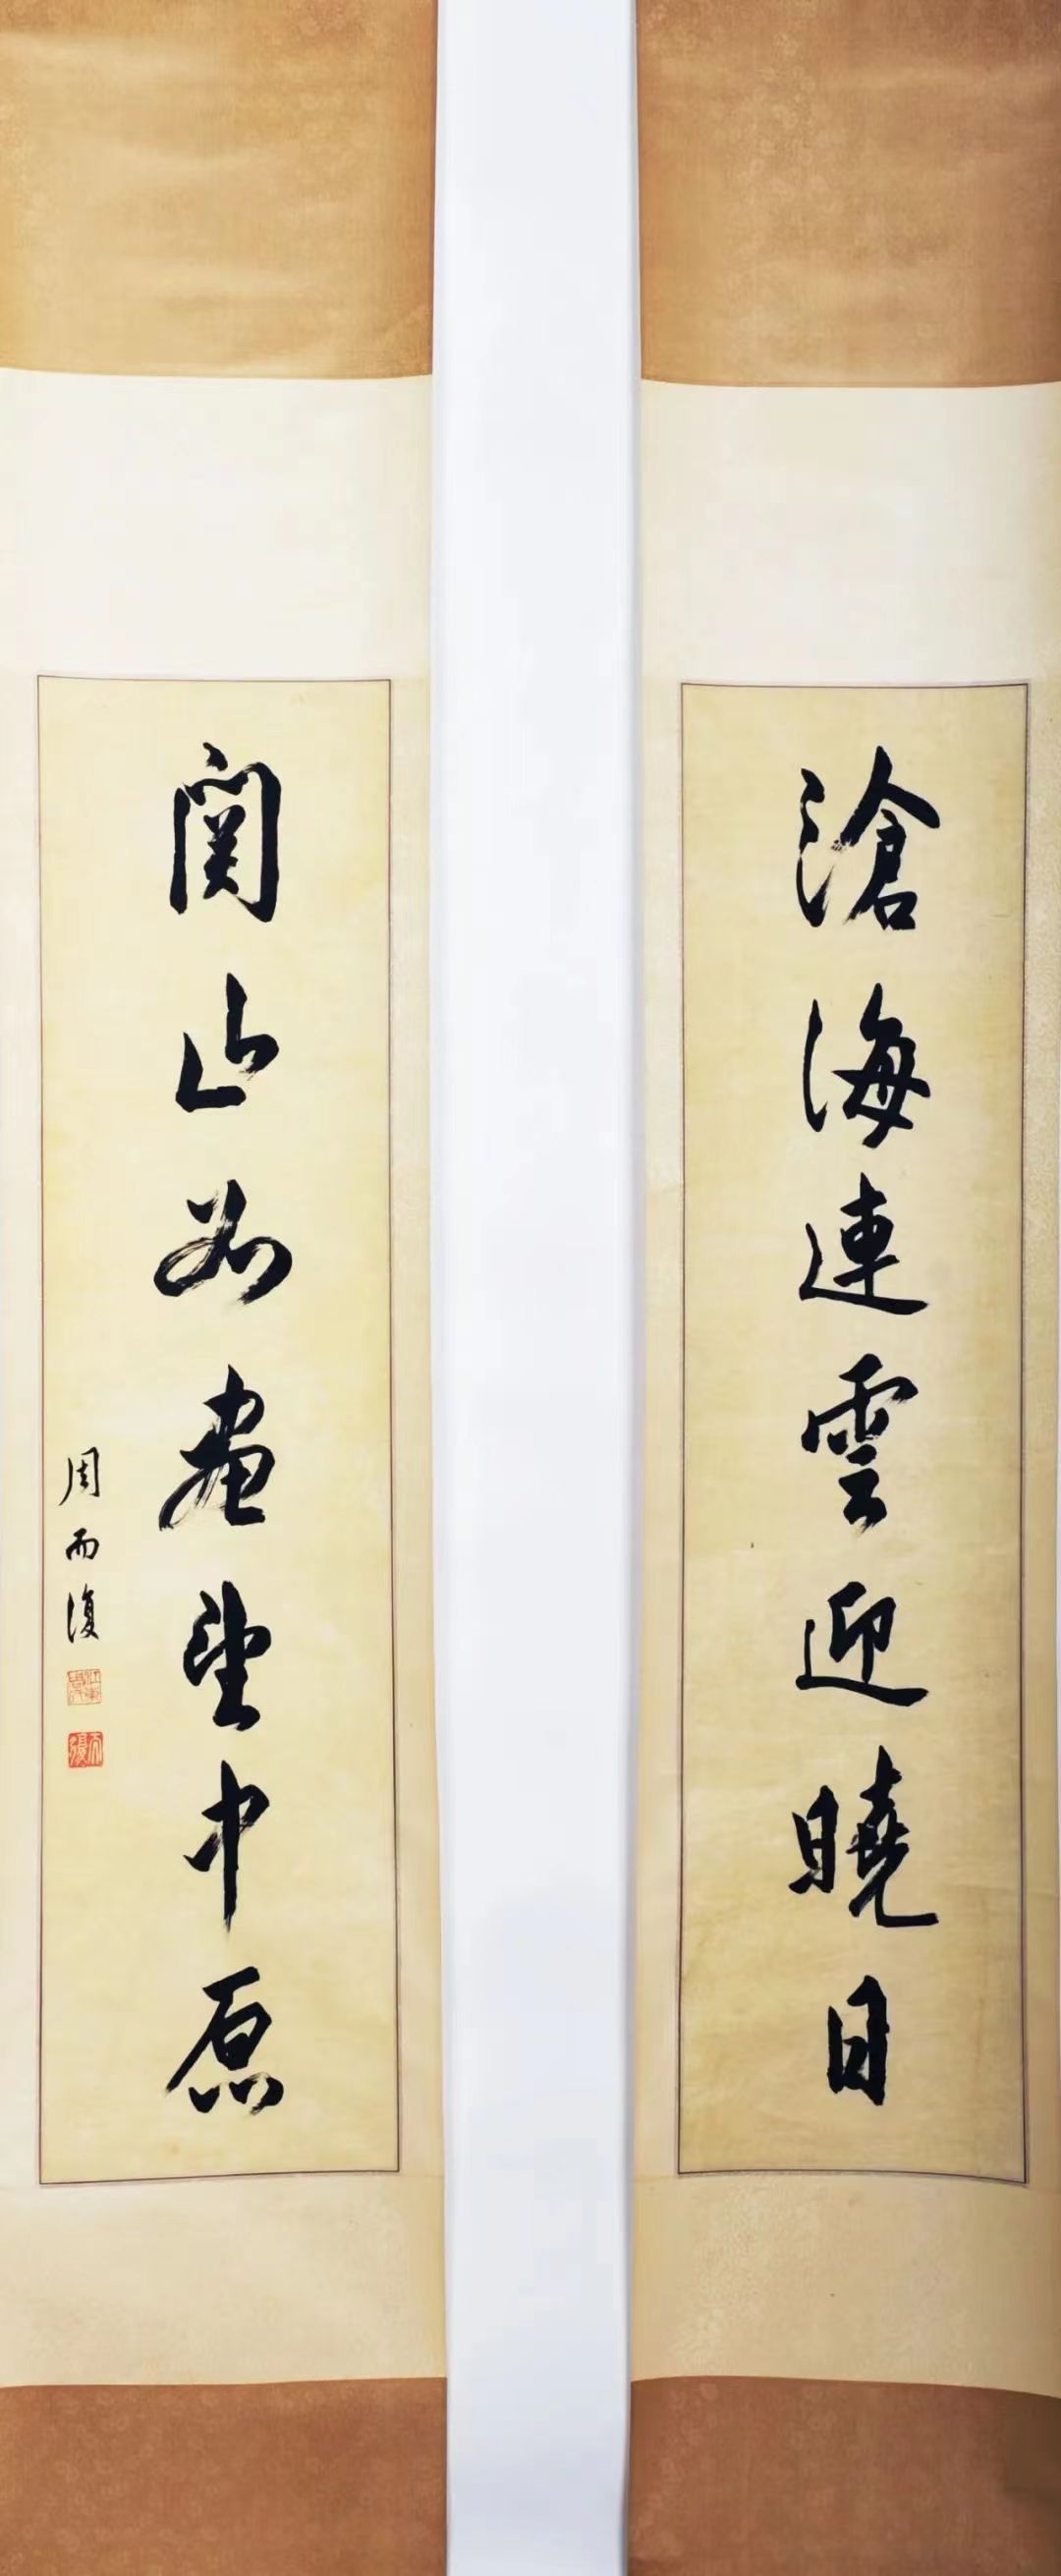 滄海連雲迎曉日
関山如畫望中原
周而復